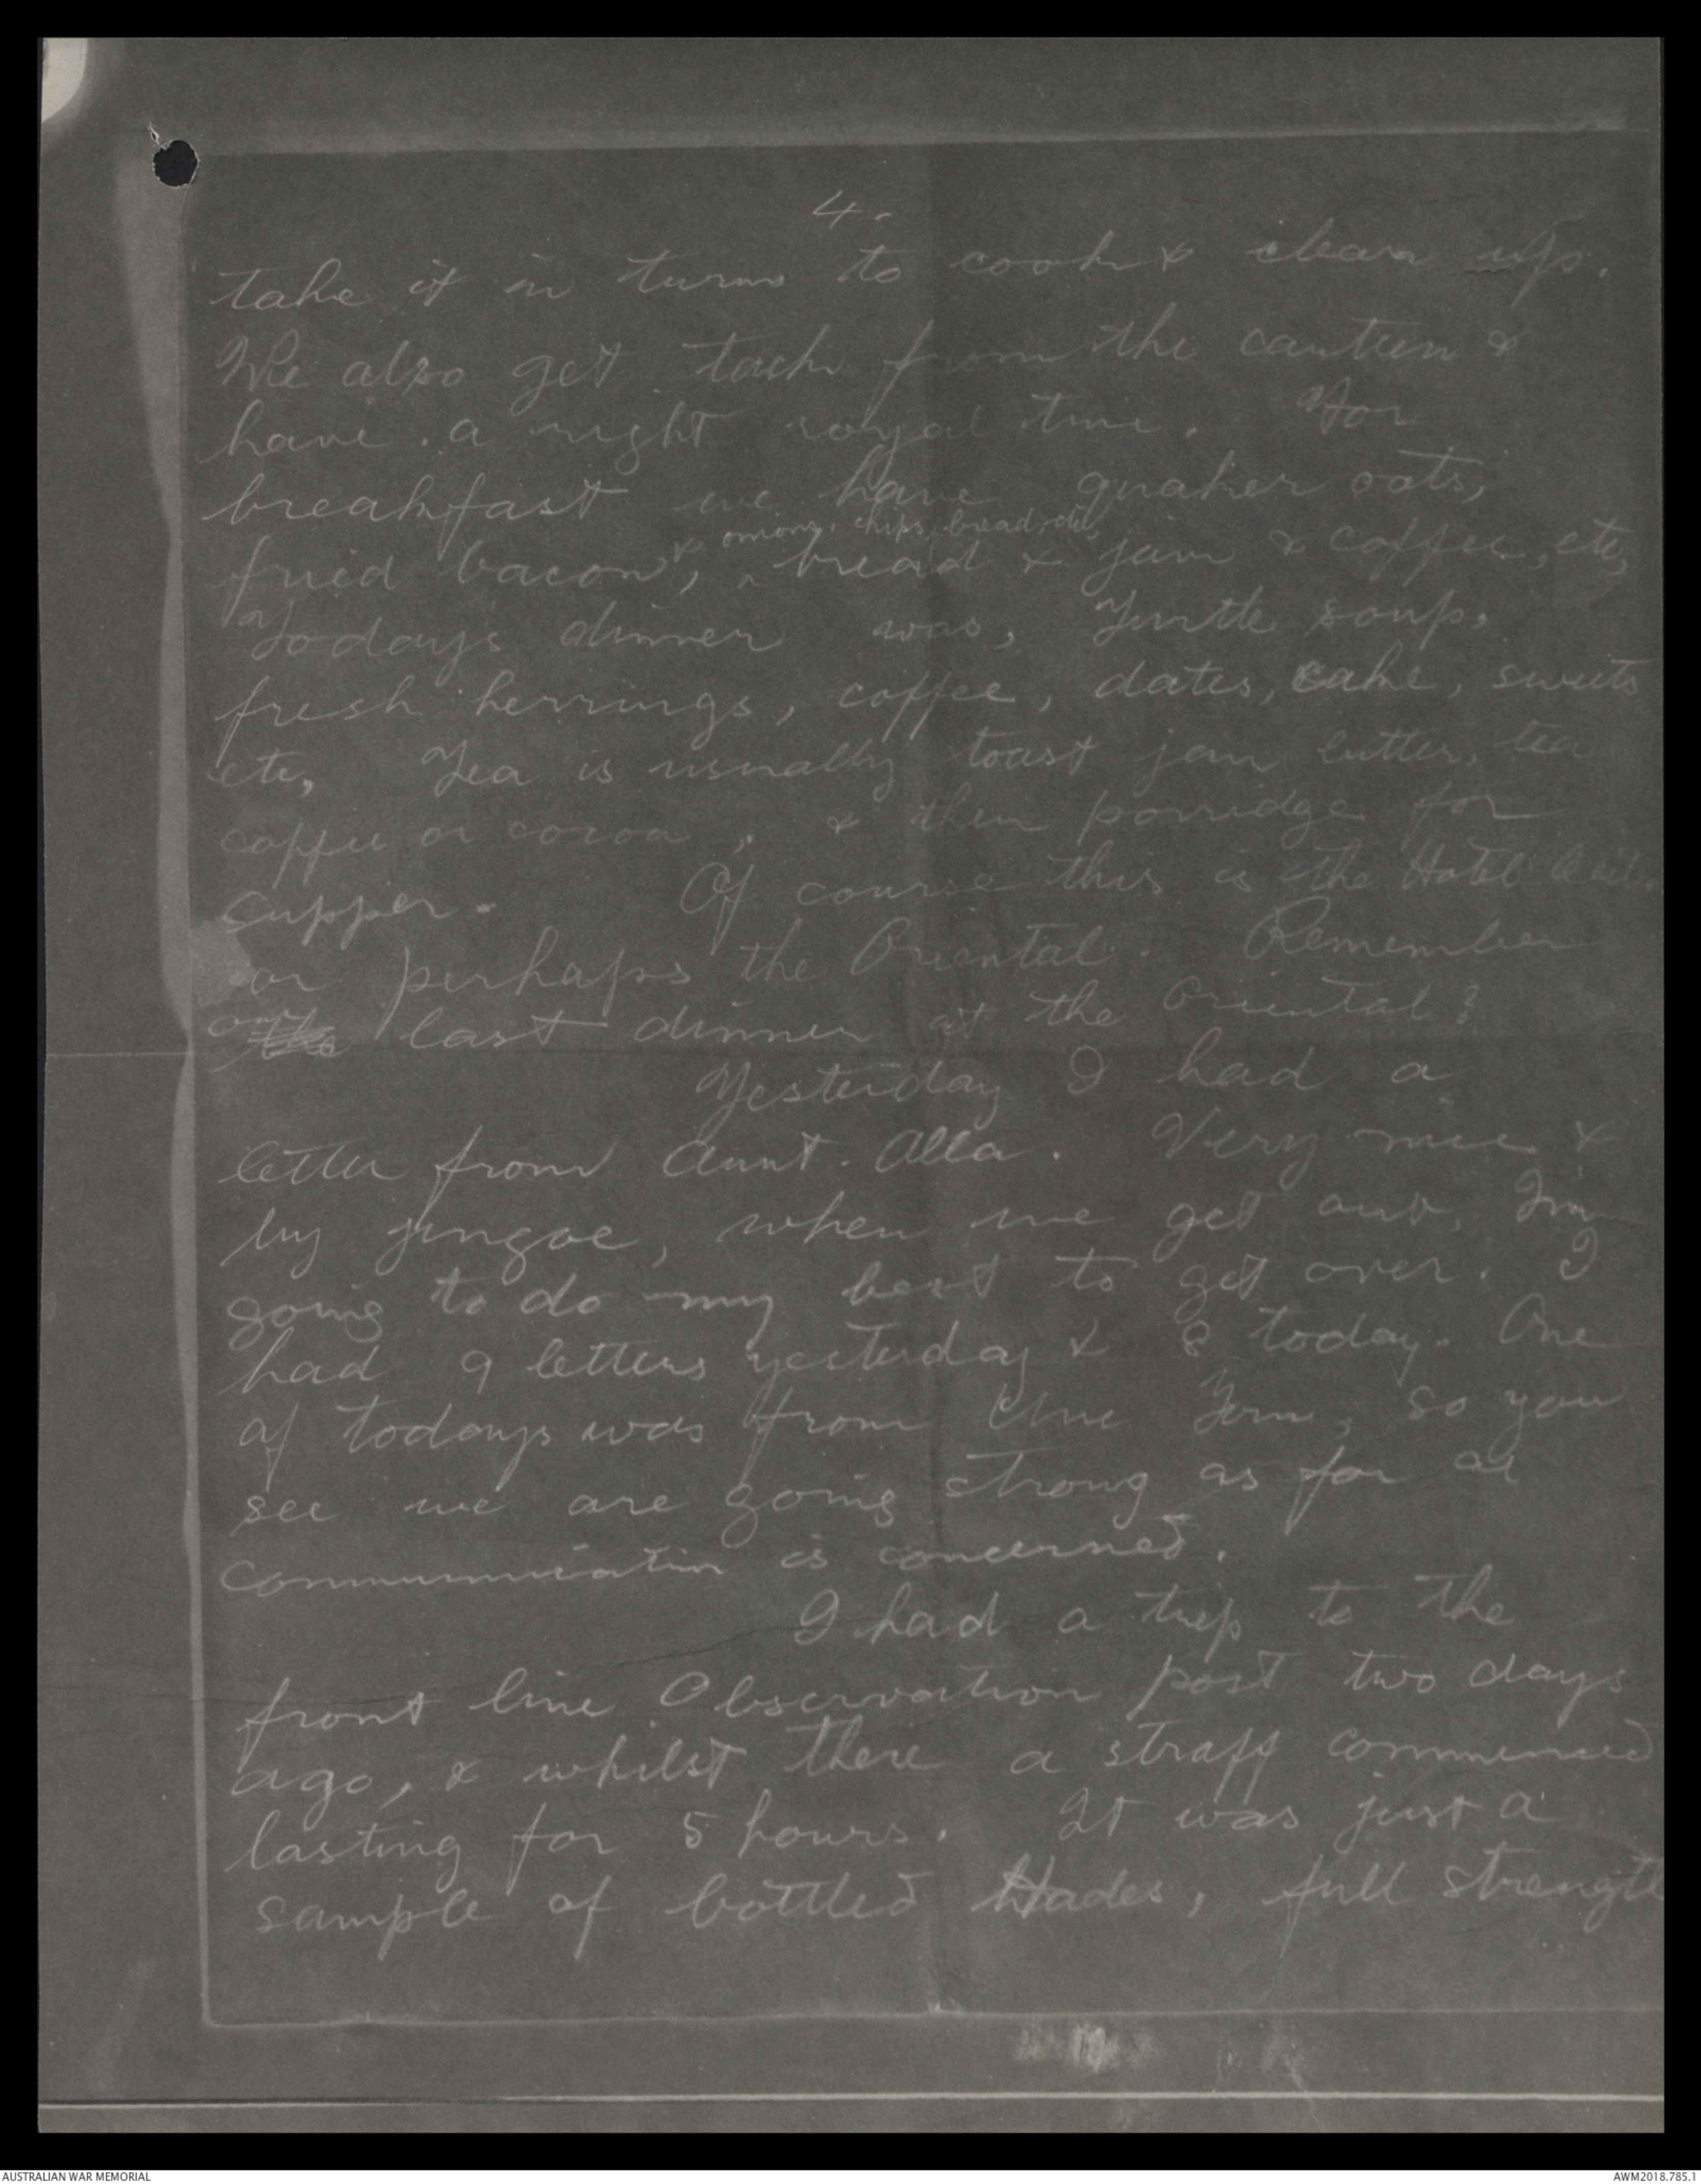 4.
take it in turns to cook & clean up.
We also get tack from the canteen &
have . a right royal time. For
breakfast we have quaker oats,
onions, chips, bread,
fried bacon, & bread & jam & coffee, etc,
Todays dinner was, Turtle soup,
fresh herrings, coffee, dates, cake, sweets
etc, Tea is usually toast jam butter, tea
coffee or cocoa, & then porridge for
supper. Of course this is the Hotel
or perhaps the Oriental. Remember
our the last dinner at the Oriental?
Yesterday I had a
letter from Aunt. Alla. Very nice &
by jingoe, when we get out, I'm
going to do my best to get over. I
had 9 letters yesterday & 8 today. One
of todays was from Unc Tom, so you
see we are going strong as far as
communication is concerned.
I had a trip to the
front line Observation post two days
ago, & whilst there a straff commenced
lasting for 5 hours. It was just a
sample of bottled Hades, full strength
AUSTRALIAN WAR MEMORIAL
AWM2018.785.1